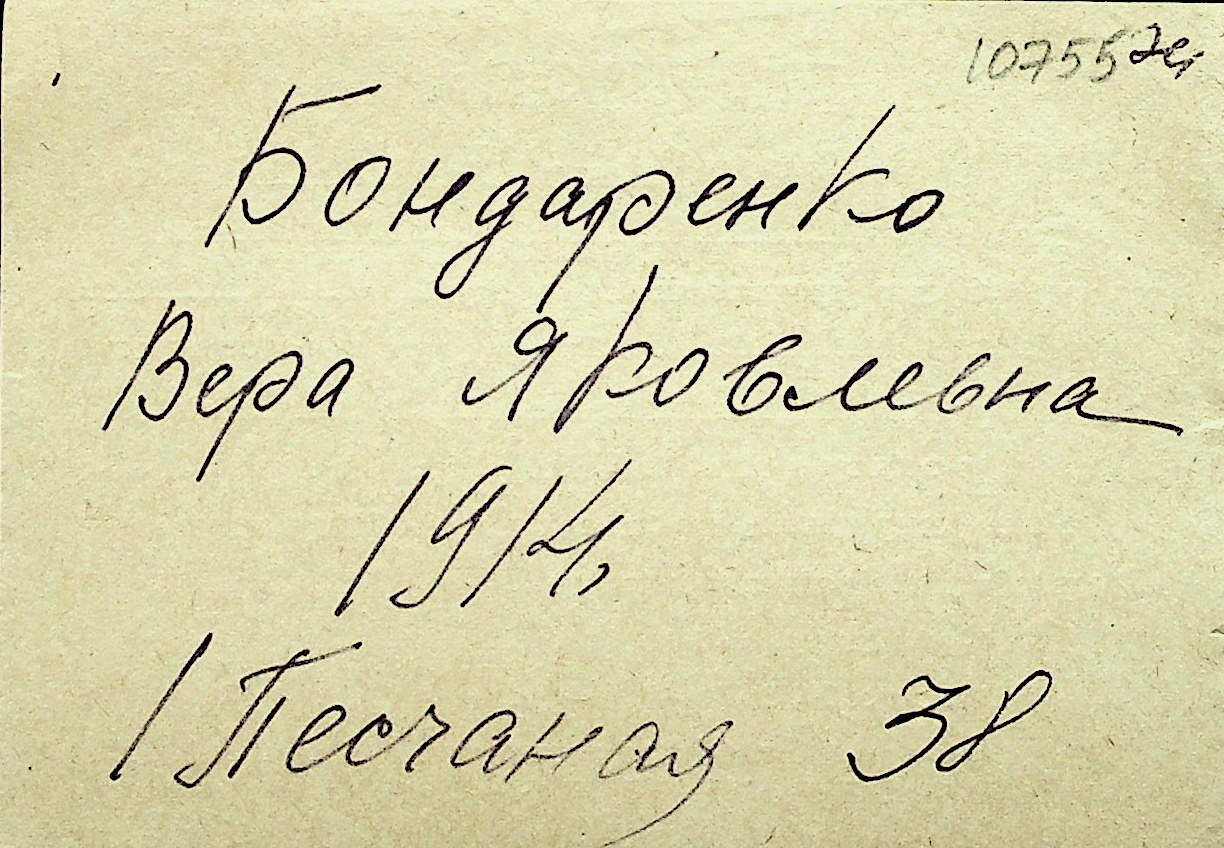 107557
Бондаренко
Вера Яковлевна
1914,
1 Песчаная 38